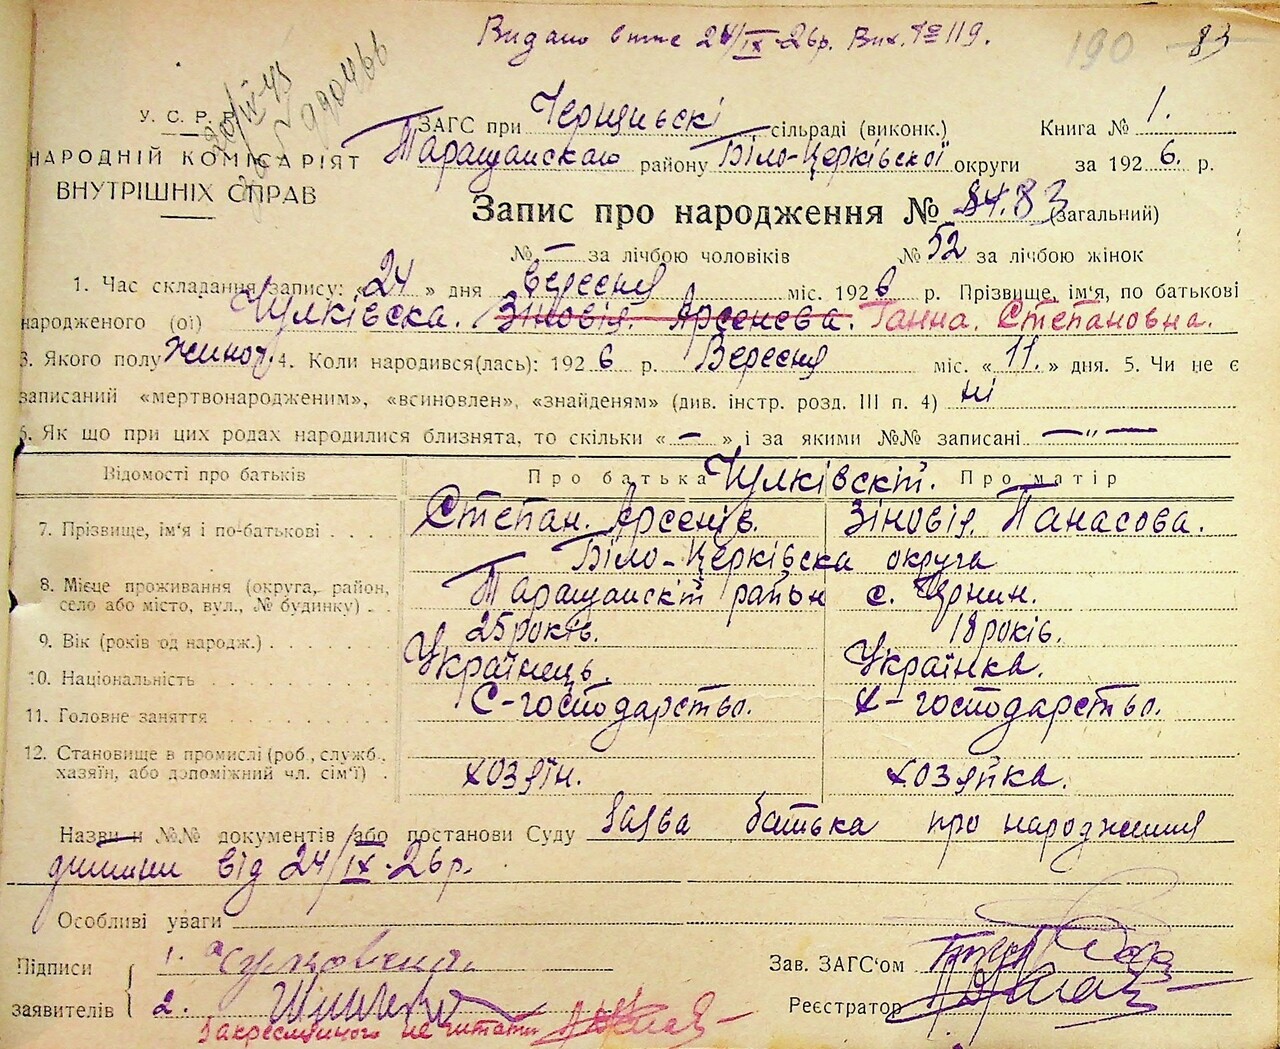 Видано 24/IX-26р. Вих. № 119.
190 83
У. С. Р. Р.
20/IV-45
ЗАГС при сільраді (виконк.) Книга № 1.
НАРОДНІЙ КОМІСАРІЯТ Таращанскаю району Біло-Церківської округи за 1926. р.
ВНУТРІШНІХ СПРАВ
Запис про народження № 84. 83 (загальний)
№ — за лічбою чоловіків № 52 за лічбою жінок
1. Час складання запису: «24» дня Вересня міс. 1926 р. Прізвище, ім'я, по батькові
народженого (ої) Чулківска. Зіновія. Арсенєва. Ганна. Степановна.
3. Якого полу жиноч. 4. Коли народився(лась): 1926 р. Вересня міс. «11.» дня. 5. Чи не є
записаний «мертвонародженим», «всиновлен», «знайденям» (див. інстр. розд. III п. 4) ні
6. Як що при цих родах народилися близнята, то скільки « — » і за якими №№ записані — " —
Відомості про батьків Про батька Чулківскі Про матір
7. Прізвище, ім'я і по-батькові Степан. Арсенів. Зіновія. Панасова.
Біло-Церківска округа
8. Місце проживання (округа, район, село або місто, вул., № будинку) Таращанскій район с.
9. Вік (років од народж.) 25 років. 18 років.
10. Національність Українець. Українка.
11. Головне заняття С-господарство. Х-господарство.
12. Становище в промислі (роб., служб., хазяїн, або допоміжний чл. сім'ї) хозяїн. хозяйка.
Назви и №№ документів або постанови Суду Заява батька про народження
дитини від 24/IX-26р.
Особливі уваги
Підписи 1. Зав. ЗАГС'ом
заявителів 2. Реєстратор
Закресленого не читати